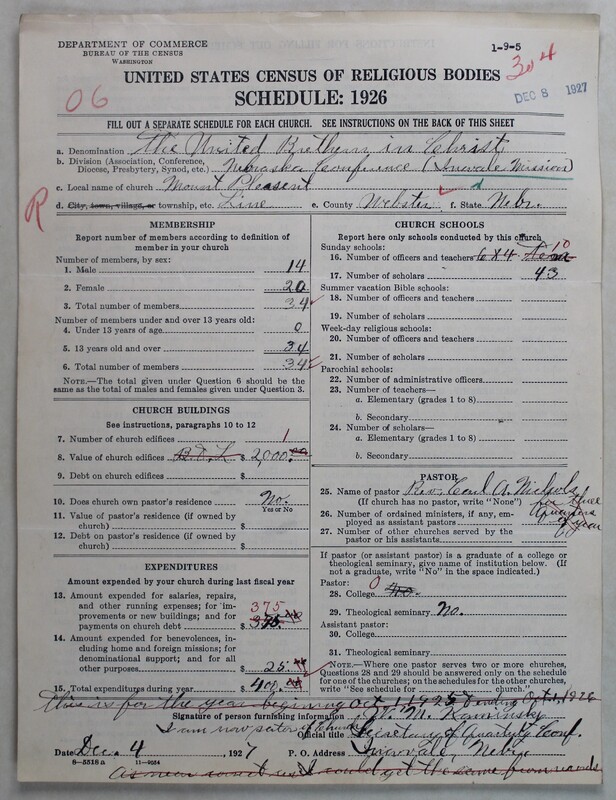 DEPARTMENT OF COMMERCE
BUREAU OF THE CENSUS
WASHINGTON
1-9-5
304
06
DEC 8 1927
UNITED STATES CENSUS OF RELIGIOUS BODIES
SCHEDULE: 1926
FILL OUT A SEPARATE SCHEDULE FOR EACH CHURCH. SEE INSTRUCTIONS ON THE BACK OF THIS SHEET
a. Denomination The United Brethern in Christ
b. Division (Association, Conference,
Diocese, Presbytery, Synod, etc.) Nebraska Conference (Inavale Mission)
c. Local name of church Mount Pleasent
R
d. City, town, village, or township, etc. Line e. County Webster f. State Nebr.
MEMBERSHIP
Report number of members according to definition of
member in your church
Number of members, by sex:
1. Male 14
2. Female 20
3. Total number of members 34
Number of members under and over 13 years old:
4. Under 13 years of age 0
5. 13 years old and over 34
6. Total number of members 34
NOTE.—The total given under Question 6 should be the
same as the total of males and females given under Question 3.
CHURCH BUILDINGS
See instructions, paragraphs 10 to 12
7. Number of church edifices 1
8. Value of church edifices $ 2,000.00
9. Debt on church edifices $
10. Does church own pastor's residence No.
Yes or No
11. Value of pastor's residence (if owned by
church) $
12. Debt on pastor's residence (if owned by
church) $
EXPENDITURES
Amount expended by your church during last fiscal year
13. Amount expended for salaries, repairs,
and other running expenses; for im-
provements or new buildings; and for
payments on church debt $ 375
375
14. Amount expended for benevolences, in-
cluding home and foreign missions; for
denominational support; and for all
other purposes $ 25.00
15. Total expenditures during year $ 400.00
CHURCH SCHOOLS
Report here only schools conducted by this church
Sunday schools:
16. Number of officers and teachers 6 & 4 10
17. Number of scholars 43
Summer vacation Bible schools:
18. Number of officers and teachers
19. Number of scholars
Week-day religious schools:
20. Number of officers and teachers
21. Number of scholars
Parochial schools:
22. Number of administrative officers
23. Number of teachers—
a. Elementary (grades 1 to 8)
b. Secondary
24. Number of scholars—
a. Elementary (grades 1 to 8)
b. Secondary
PASTOR
25. Name of pastor Rev. Carl A. Nichols
(If church has no pastor, write "None")
26. Number of ordained ministers, if any, em-
ployed as assistant pastors
27. Number of other churches served by the
pastor or his assistants
of year
If pastor (or assistant pastor) is a graduate of a college or
theological seminary, give name of institution below. (If
not a graduate, write "No" in the space indicated.)
Pastor:
28. College 0 No.
29. Theological seminary No.
Assistant pastor:
30. College
31. Theological seminary
NOTE.—Where one pastor serves two or more churches,
Questions 28 and 29 should be answered only on the schedule
for one of the churches; on the schedules for the other churches,
write "See schedule for church."
this is for the year beginning Oct 1, 1925 & ending Oct 1, 1926
Signature of person furnishing information M. Kaminsky
I am now
Official title Secretary of Quarterly Conf.
Date Dec. 4, 1927 P. O. Address Inavale, Nebr.
8—5518 a 11—9054
as near correct as I could get the same from records